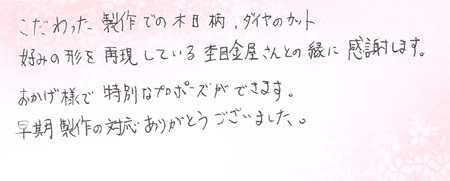 こだわった製作での木目柄、ダイヤのカット
好みの形を再現している杢目金屋さんとの縁に感謝します。
おかげ様で特別なプロポーズができます。
早期製作の対応ありがとうございました。